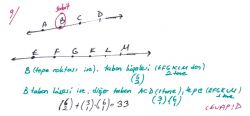 9)
Sabit
A B C D
E F G K L M
B (tepe noktası ise), taban köşeleri (EFGKLM den)
2 tane
(6 2)
B taban köşesi ise, diğer taban ACD (1 tane), tepe (EFGKLM)
1 tane
(3 1) (6 1)
(6 2) + (3 1) · (6 1) = 33
CEVAP D